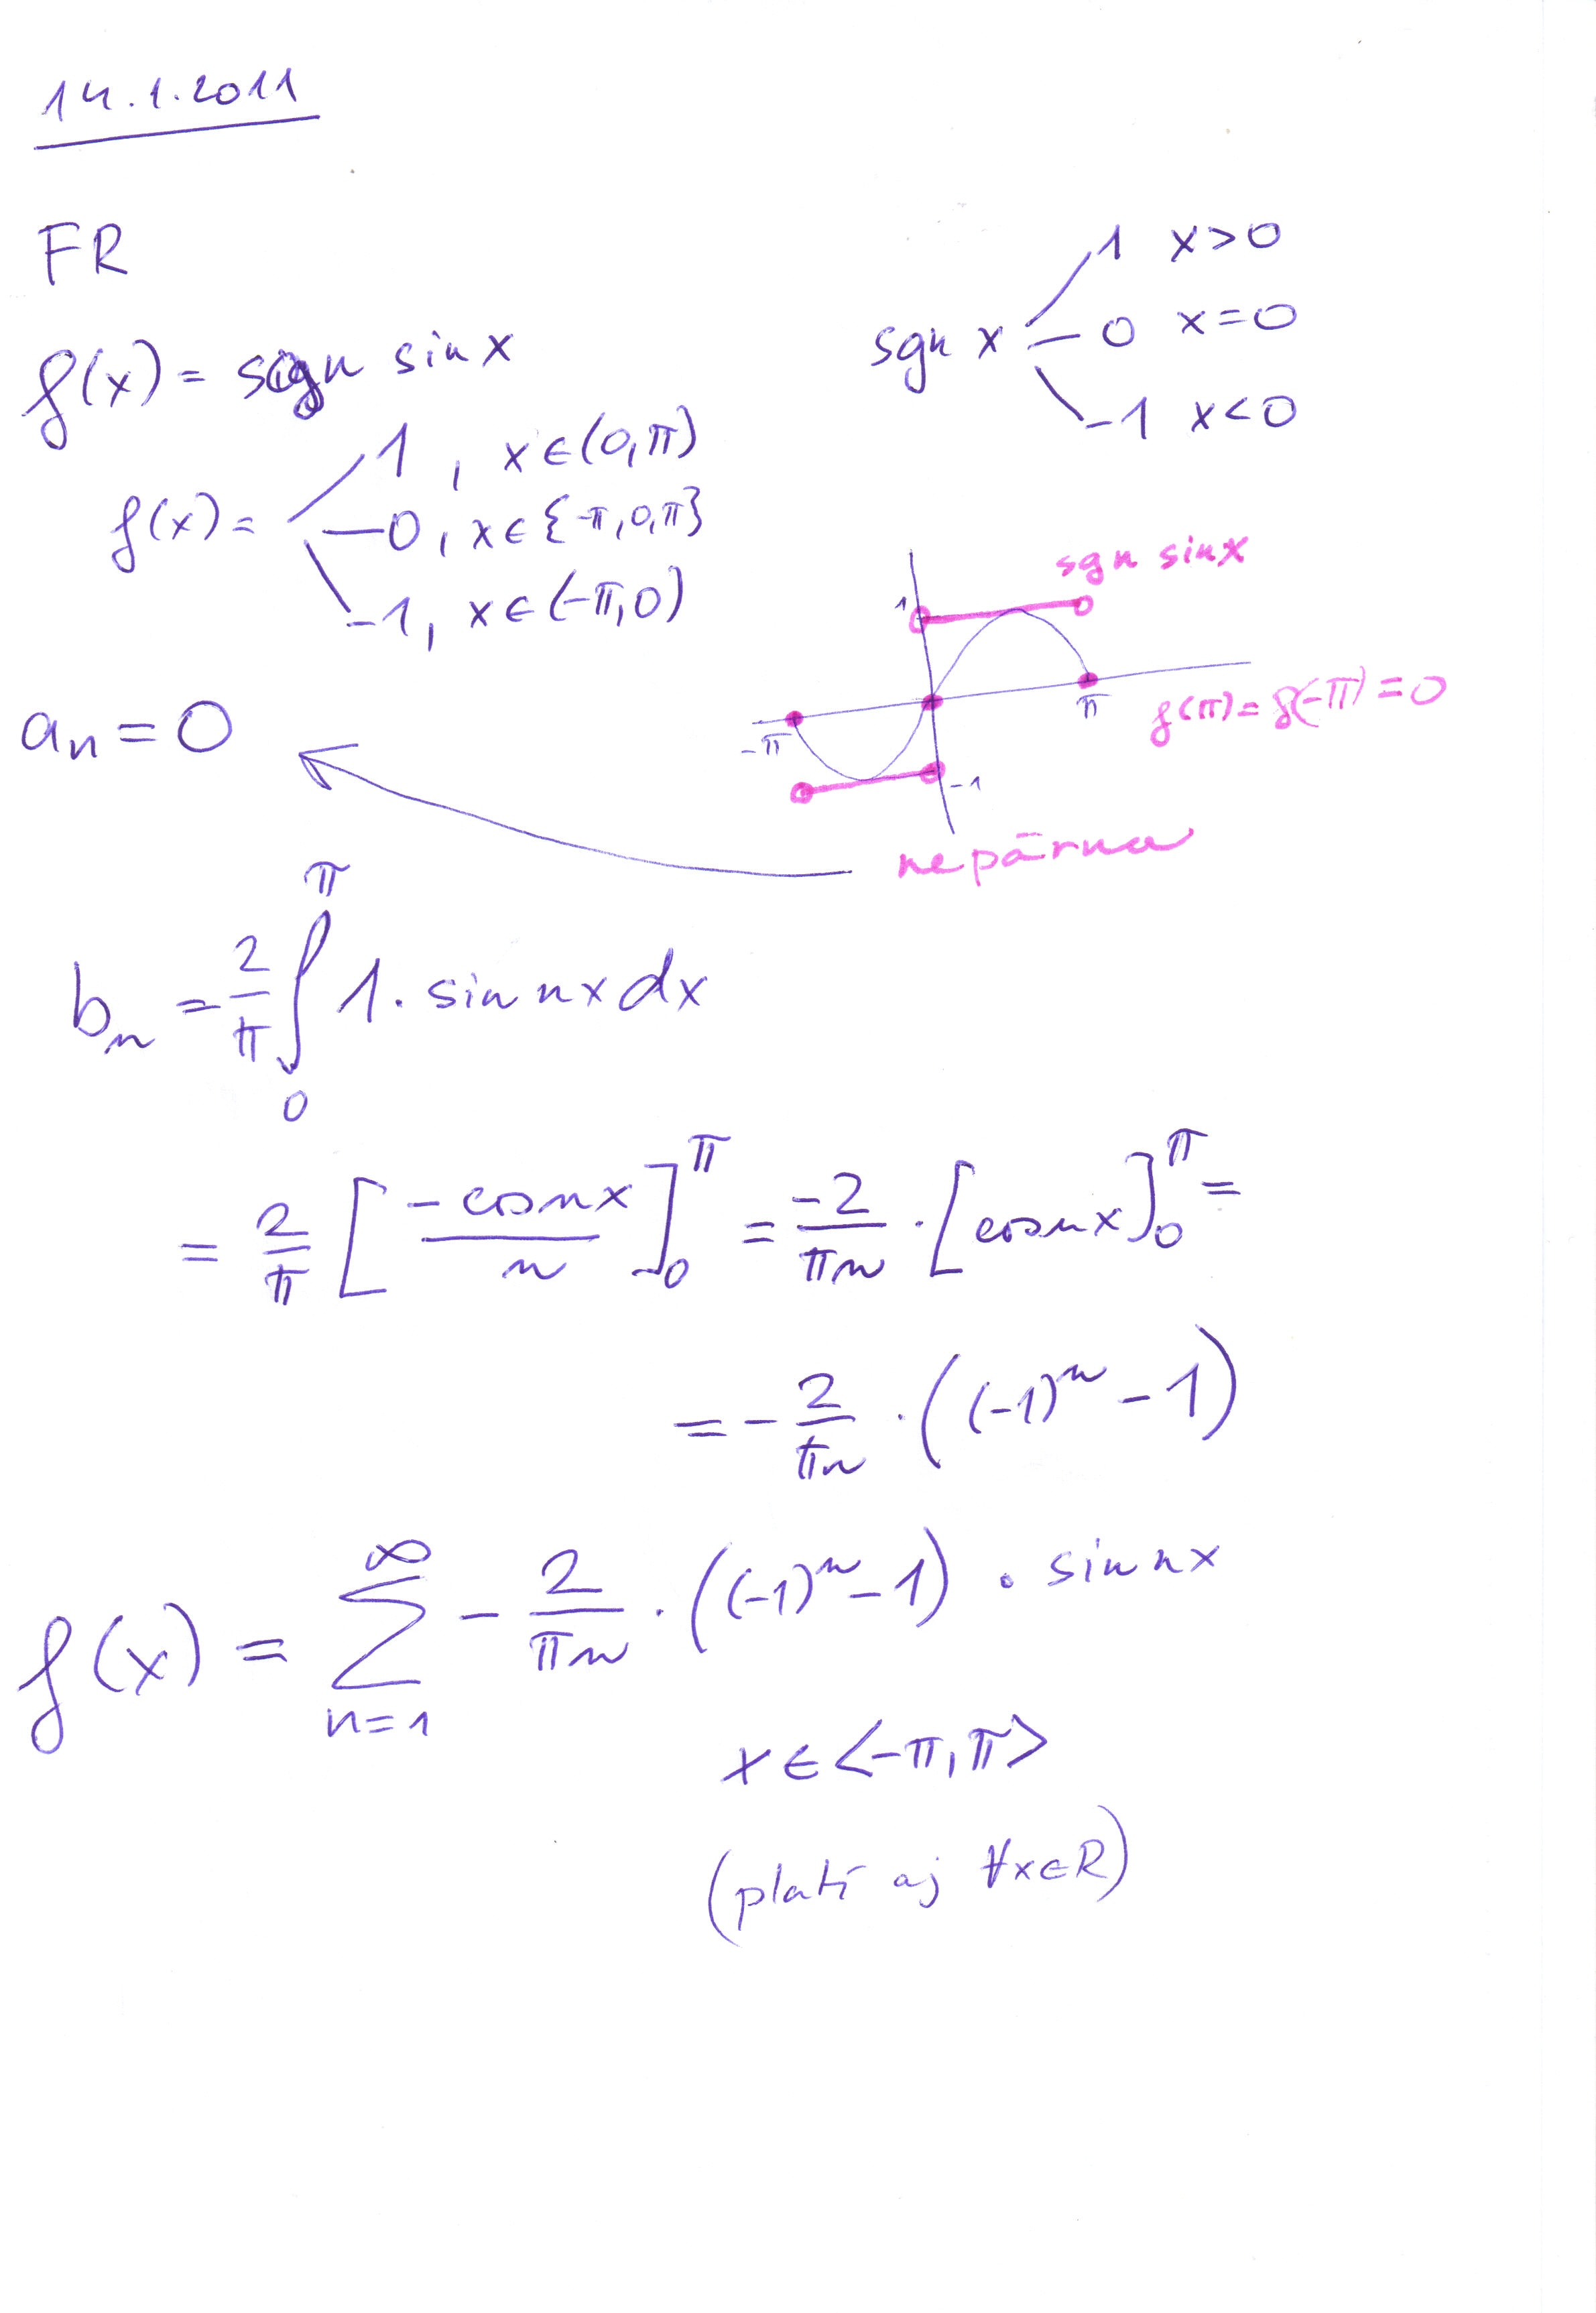 14.1.2011
FR
f(x) = sgn sin x
sgn x 1 x>0
0 x=0
-1 x<0
f(x) = 1, x∈(0,π)
0, x∈{-π,0,π}
-1, x∈(-π,0)
sgn sin x
1
π
-π
-1
f(π)=f(-π)=0
an = 0
nepárna
bn = 2/π ∫₀^π 1. sin nx dx
= 2/π [-cos nx / n]₀^π = -2/πn . [cos nx]₀^π =
= - 2/πn . ((-1)^n - 1)
f(x) = ∑_{n=1}^∞ - 2/πn . ((-1)^n - 1) . sin nx
x ∈ <-π,π>
(platí aj ∀x∈R)